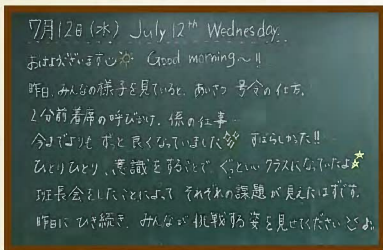 7月12日(水) July 12th Wednesday.
おはようございます Good morning〜!!
昨日、みんなの様子を見ていると、あいさつ 号令の仕方、
2分前着席の呼びかけ、係の仕事…
今までよりも ずっと良くなっていました すばらしかった!!
ひとりひとり、意識をすることで、ぐっといいクラスになっていたよ
班長会をしたことによって それぞれの課題が見えたはずです。
昨日に ひき続き、みんなが挑戦する姿を見せてください